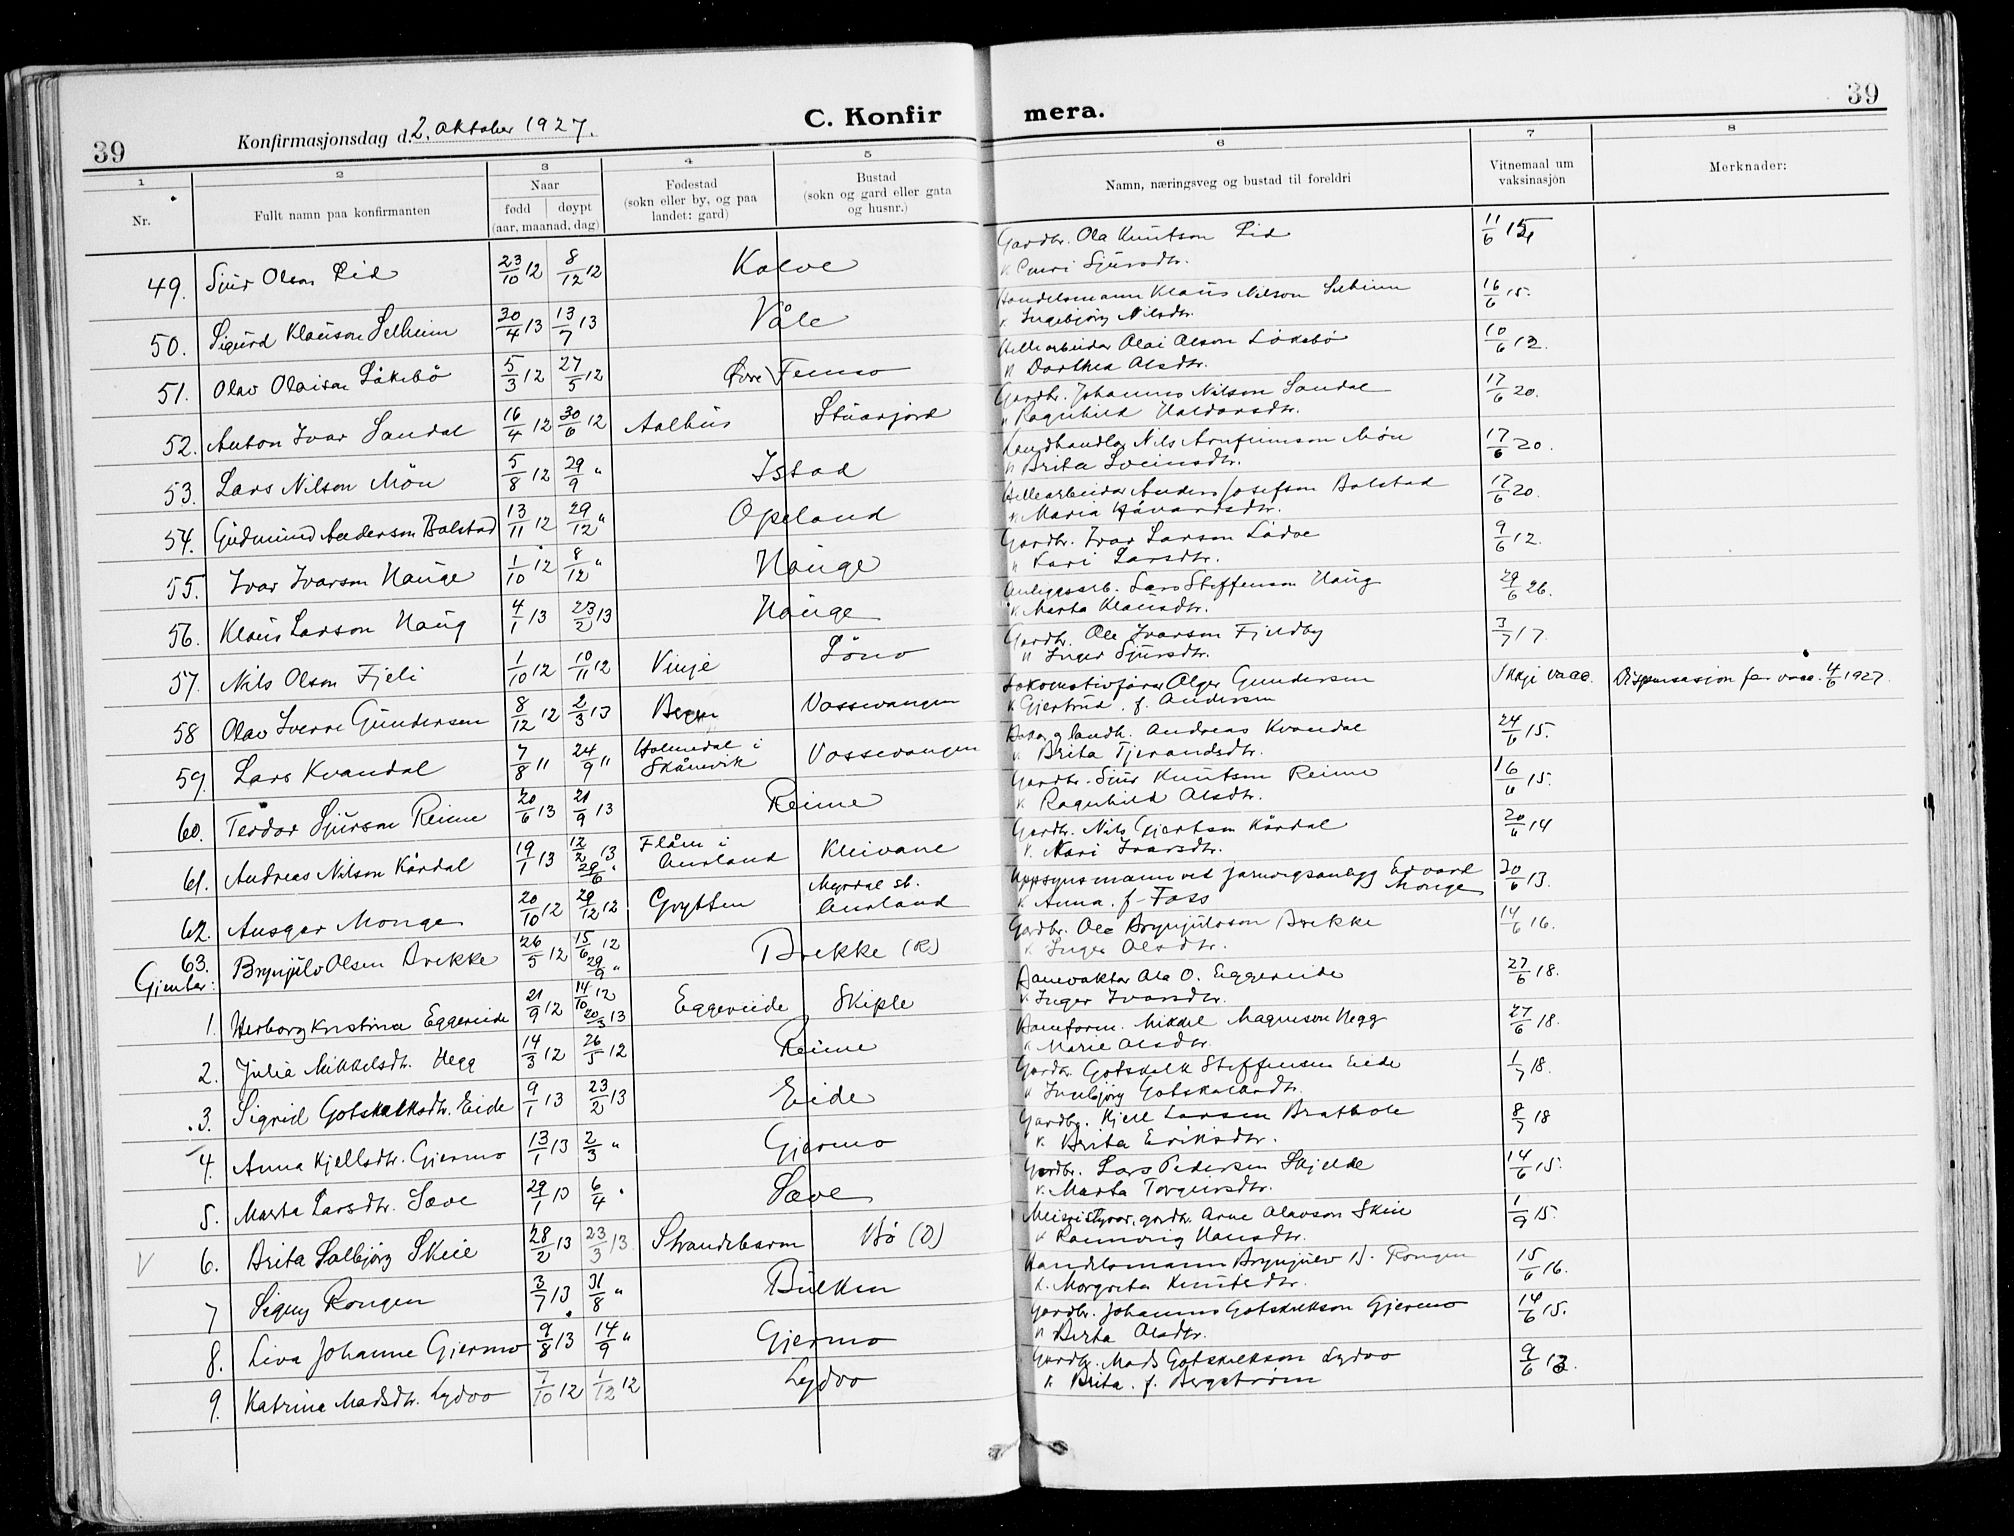 39
Konfirmasjonsdag d. 2. oktober 1927.
C. Konfir
mera.
39
1 2 3 4 5 6 7 8
Nr.
Fullt namn paa konfirmanten
Naar
fødd døypt
(aar, maanad, dag)
Fødestad
(sokn eller by, og paa
landet: gard)
Bustad
(sokn og gard eller gata
og husnr.)
Namn, næringsveg og bustad til foreldri
Vitnemaal um
vaksinasjon
Merknader:
49. Sjur Olson Lid 23/10 12 8/12 12 Kolve Gardbr. Ola Knutson Lid 11/6 15
Sjursdtr.
50. Sigurd Klauson Selheim 30/4 13 13/7 13 Våle Handelsmann Klaus Nilson Selheim 16/6 15.
Ingebjörg Nilsdtr.
51. Olav Olaison Låkebö 5/3 12 27/5 12 Övre Femso Hellearbeidar Olai Olson Låkebö 10/6 13.
" Dorthea Olsdtr.
52. Anton Ivar Sandal 16/4 12 30/6 12 Aalhus Gardbr. Johannes Nilson Sandal 17/6 20.
" Ragnhild Haldorsdtr.
53. Lars Nilson Mön 5/8 12 29/9 " Istad Landhandlar Nils Arnfinnson Mön 17/6 20.
" Brita Sveinsdtr.
54. Gudmund Anderson Bolstad 13/11 12 29/12 " Opeland Hellearbeidar Anders Josefson Bolstad 17/6 20.
" Maria Håvardsdtr.
55. Ivar Ivarson Hauge 1/10 12 8/12 " Hauge Gardbr. Ivar Larson Lådve 9/6 12.
" Kari Larsdtr.
56. Klaus Larson Haug 4/1 13 23/2 13 Hauge Anleggsarb. Lars Steffenson Haug 29/6 26.
" Marta Klausdtr.
57. Nils Olson Fjeli 1/10 12 10/11 12 Vinje Löno Gardbr. Ole Ivarson Fjeldby 3/7 17.
" Inger Sjursdtr.
58 Olav Sverre Gundersen 8/12 12 2/3 13 Bergen Vossevangen Lokomotivförar Olger Gundersen Ikkje vacc. Dispensasjon for vacc. 4/6 1927.
" Gjertrud. f. Andersen
59. Lars Kvandal 7/8 " 24/9 " Holmedal i Skånevik Vossevangen Bakar, g landh. Andreas Kvandal 24/6 15.
" Brita Tjerandsdtr.
60. Teodor Sjurson Reime 20/6 13 21/9 13 Reime Gardbr. Sjur Knutson Reime 16/6 15.
" Ragnhild Olsdtr.
61. Andreas Nilson Kårdal 19/1 13 12/2 13 Flåm i Aurland Kleivane Gardbr. Nils Gjertson Kårdal 20/6 14
29/6 "
" Mari Ivarsdtr.
62. Ansgar Monge 20/10 12 29/12 12 Grytten Myrdal st. Aurland Uppsynsmann ved jarnvegsanlegg Edvard Monge 20/6 13.
" Anna. f. Foss
63. Brynjulv Olsen Brekke 26/5 12 15/6 12 Brekke (R) Gardbr. Ole Brynjulvson Brekke 14/6 16.
29/9 "
" Inger Olsdtr.
Gjenter:
1. Herborg Kristina Eggereide 21/9 12 14/10 12 Eggereide Skiple Banevaktar Ola O. Eggereide 27/6 18.
20/3 13
" Inger Ivarsdtr.
2. Julia Mikkelsdtr. Hegg 14/3 12 26/5 12 Reime Baneform. Mikkel Magneson Hegg 27/6 18.
" Marie Olsdtr.
3. Sigrid Gotskalksdtr. Eide 9/1 13 23/2 13 Eide Gardbr. Gotskalk Steffensen Eide 1/7 18.
" Ingebjörg Gotskalksdtr.
4. Anna Kjellsdtr. Gjermo 13/1 13 2/3 " Gjermo Gardbr. Kjell Larsen Brathole 8/7 18
" Brita Eriksdtr.
5. Marta Larsdtr. Sæve 29/1 13 6/4 " Sæve Gardbr. Lars Pedersen Skjelde 14/6 15.
" Marta Torgeirsdtr.
V 6. Brita Salbjörg Skeie 28/2 13 23/3 13 Strandebarm Bö (D) Meieristyrar, gardbr. Arne Olavson Skeie 1/9 15.
" Rannveig Hansdtr.
7 Signy Rongen 3/7 13 31/8 " Bulken Handelsmann Brynjulv B. Rongen 15/6 16.
" Margreta Knutsdtr.
8. Liva Johanne Gjermo 9/8 13 14/9 " Gjermo Gardbr. Johannes Gotskalkson Gjermo 14/6 15.
" Berta Olsdtr.
9. Katrina Madsdtr. Lydvo 7/10 12 1/12 12 Lydvo Gardbr. Mads Gotskalkson Lydvo 9/6 13.
" Brita. f. Bergström